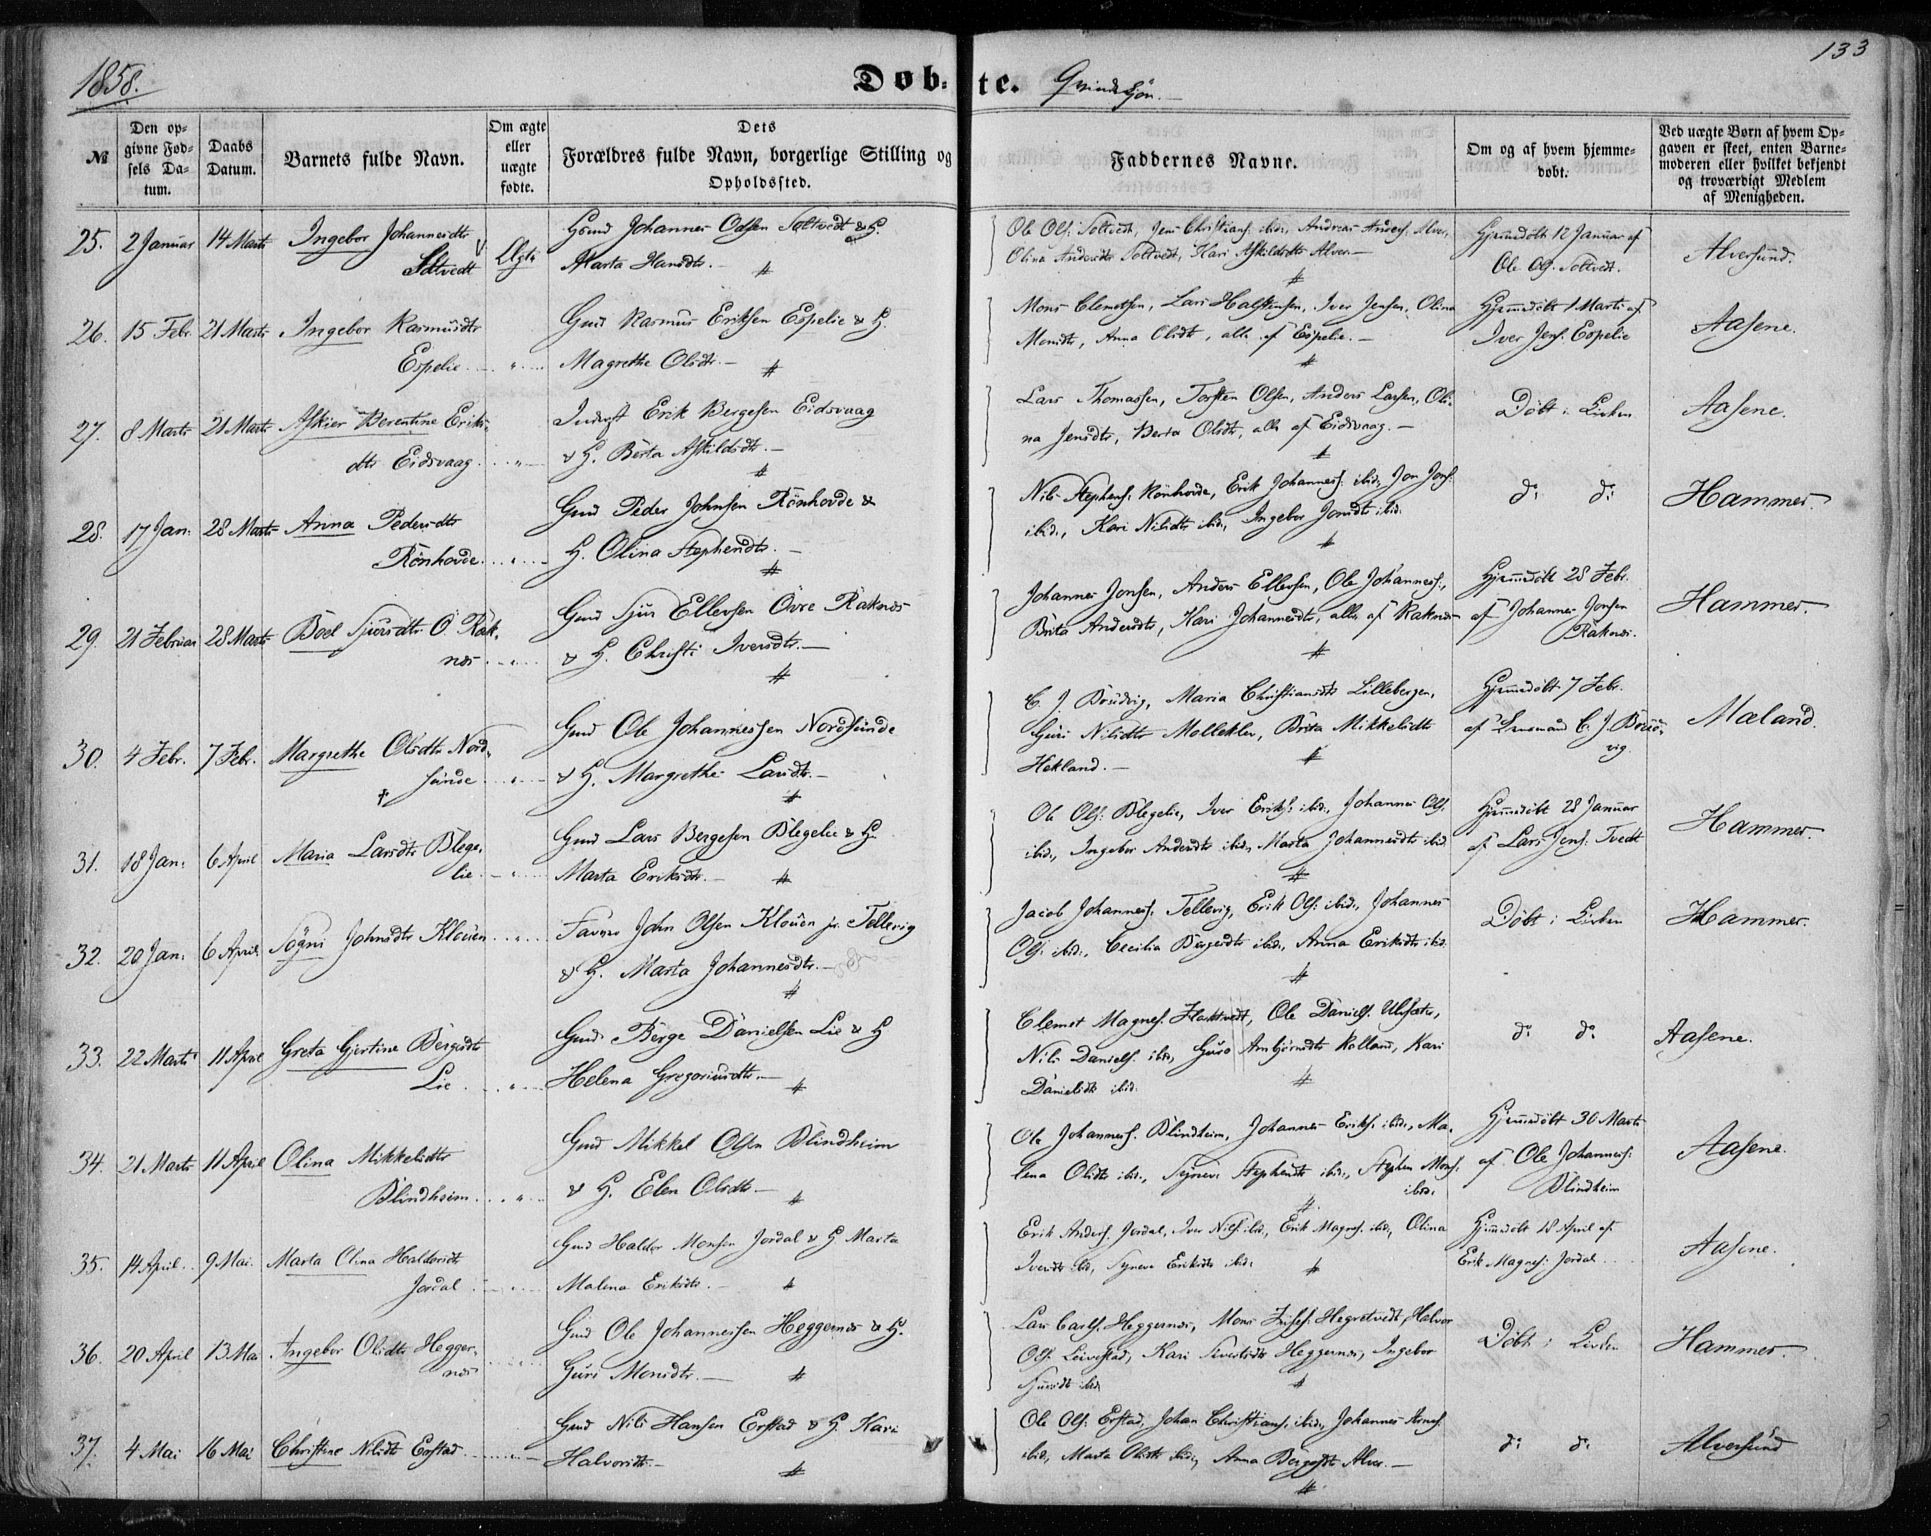 1858.
Døb-
te. Qvindekjøn.
133
№
Den op-
givne Fød-
sels Da-
tum.
Daabs
Datum.
Barnets fulde Navn.
Om ægte
eller
uægte
fødte.
Dets
Forældres fulde Navn, borgerlige Stilling og
Opholdssted.
Faddernes Navne.
Om og af hvem hjemme-
døbt.
Ved uægte Børn af hvem Op-
gaven er skeet, enten Barne-
moderen eller hvilket bekjendt
og troværdigt Medlem
af Menigheden.
25. 2 Januar 14 Marts Ingebor Johannesdtr
Soltvedt Ægte
Gmd Johannes Olsen Soltvedt & H.
Marta Hansdtr.
Ole Ols: Soltvedt, Jens Christians: ibid:, Andreas Anders: Alver,
Olina Andersdtr Soltvedt, Kari Askildsdtr Alver
Hjemmdøbt 12 Januar af
Ole Ols: Soltvedt.
Alversund.
26. 15 Febr. 21 Marts Ingebor Rasmusdtr
Espelie
Gmd Rasmus Eriksen Espelie & H.
Magrethe Olsdtr.
Mons Clemetsen, Lars Halstensen, Iver Jensen, Olina
Monsdtr, Anna Olsdtr, alle af Espelie.
Hjemmdøbt 1 Marts af
Iver Jens: Espelie
Aasene.
27. 8 Marts 21 Marts Askier Berentine Eriks-
dtr Eidsvaag
Inderst Erik Bergesen Eidsvaag
& H. Berta Askildsdtr.
Lars Thomassen, Torsten Olsen, Anders Larsen, Oli-
na Jensdtr, Berta Olsdtr, alle af Eidsvaag.
Døbt i Kirken
Aasene.
28. 17 Jan. 28 Marts Anna Pedersdtr
Rönhovde
Gmd Peder Johnsen Rönhovde &
H. Olina Stephensdtr.
Nils Stephens: Rönhovde, Erik Johannes: ibid:, Jon Jons:
ibid:, Kari Nilsdtr ibid:, Ingebor Jonsdtr ibid.
do do
Hammer.
29. 21 Februar 28 Marts Boel Sjursdtr Ö. Rak-
nes
Gmd Sjur Ellevsen Övre Raknes
& H. Christi Iversdtr.
Johannes Jonsen, Anders Ellevsen, Ole Johannes:,
Brita Andersdtr, Kari Johannesdtr, alle af Raknes
Hjemmdøbt 28 Febr.
af Johannes Jonsen
Raknes.
Hammer.
30. 4 Febr. 7 Febr. Margrethe Olsdtr Nord-
sunde
Gmd Ole Johannessen Nordsunde
& H. Margrethe Larsdtr.
C. J. Brudvig, Maria Christiansdtr Lillebergen,
Guri Nilsdtr Mollekler, Brita Mikkelsdtr
Hekland.
Hjemmdøbt 7 Febr.
af Lensmand C. J. Brud-
vig.
Mæland.
31. 18 Jan: 6 April Maria Larsdtr Blege-
lie
Gmd Lars Bergesen Blegelie & H.
Marta Eriksdtr.
Ole Ols: Blegelie, Iver Eriks: ibid:, Johannes Ols:
ibid:, Ingebor Andersdtr ibid:, Marta Johannesdtr ibid.
Hjemmdøbt 28 Januar
af Lars Jens: Tvedt
Hammer.
32. 20 Jan: 6 April. Sögni Johnsdtr Klouen
John Olsen Klouen Tellevig
& H. Marta Johannesdtr.
Jacob Johannes: Tellevig, Erik Ols: ibid:, Johannes
Ols: ibid:, Cecilia Börgesdtr ibid:, Anna Eriksdtr ibid.
Døbt i Kirken
Hammer.
33. 22 Marts 11 April Greta Gjertine Börgesdtr
Lie
Gmd: Börge Danielsen Lie & H
Helena Gregoriusdtr.
Clemet Magnes: Flaktvedt, Ole Daniels: Ulsæter,
Nils Daniels: ibid, Guro Ambjörnsdtr Rolland, Kari
Danielsdtr ibid:
do do
Aasene.
34. 21 Marts 11 April Olina Mikkelsdtr
Blindheim
Gmd Mikkel Olsen Blindheim
& H. Elen Olsdtr
Ole Johannes: Blindheim, Johannes Eriks: ibid:, Ma-
lena Olsdtr ibid:, Synevi Stephensdtr ibid:, Stephen Mons:
ibid:
Hjemmdøbt 30 Marts
af Ole Johannes:
Blindheim
Aasene.
35. 14 April 9 Mai. Marta Olina Haldorsdtr
Jordal
Gmd Haldor Monsen Jordal & H. Marta
Malena Eriksdtr.
Erik Anders: Jordal, Iver Nils: ibid, Erik Magnes: ibid:, Olina
Iversdtr ibid, Syneve Eriksdtr ibid:
Hjemmdøbt 18 April af
Erik Magnes: Jordal
Aasene.
36. 20 April 13 Mai Ingebor Olsdtr Hegger-
nes
Gmd Ole Johannessen Heggernes & H.
Guri Monsdtr.
Lars Carls: Heggernes, Mons Hegretvedt, Halvor
Ols: Leivestad, Kari Sivertsdtr Heggernes, Ingebor
Sjursdtr ibid
Døbt i Kirken
Hammer.
37. 4 Mai 16 Mai Christine Nilsdtr Erstad
Gmd Nils Hansen Erstad & H. Kari
Halvorsdtr.
Ole Ols: Erstad, Johan Christians: ibid:, Johannes Arnes:
ibid, Marta Olsdtr ibid:, Anna Börgesdtr Alver.
do do
Alversund